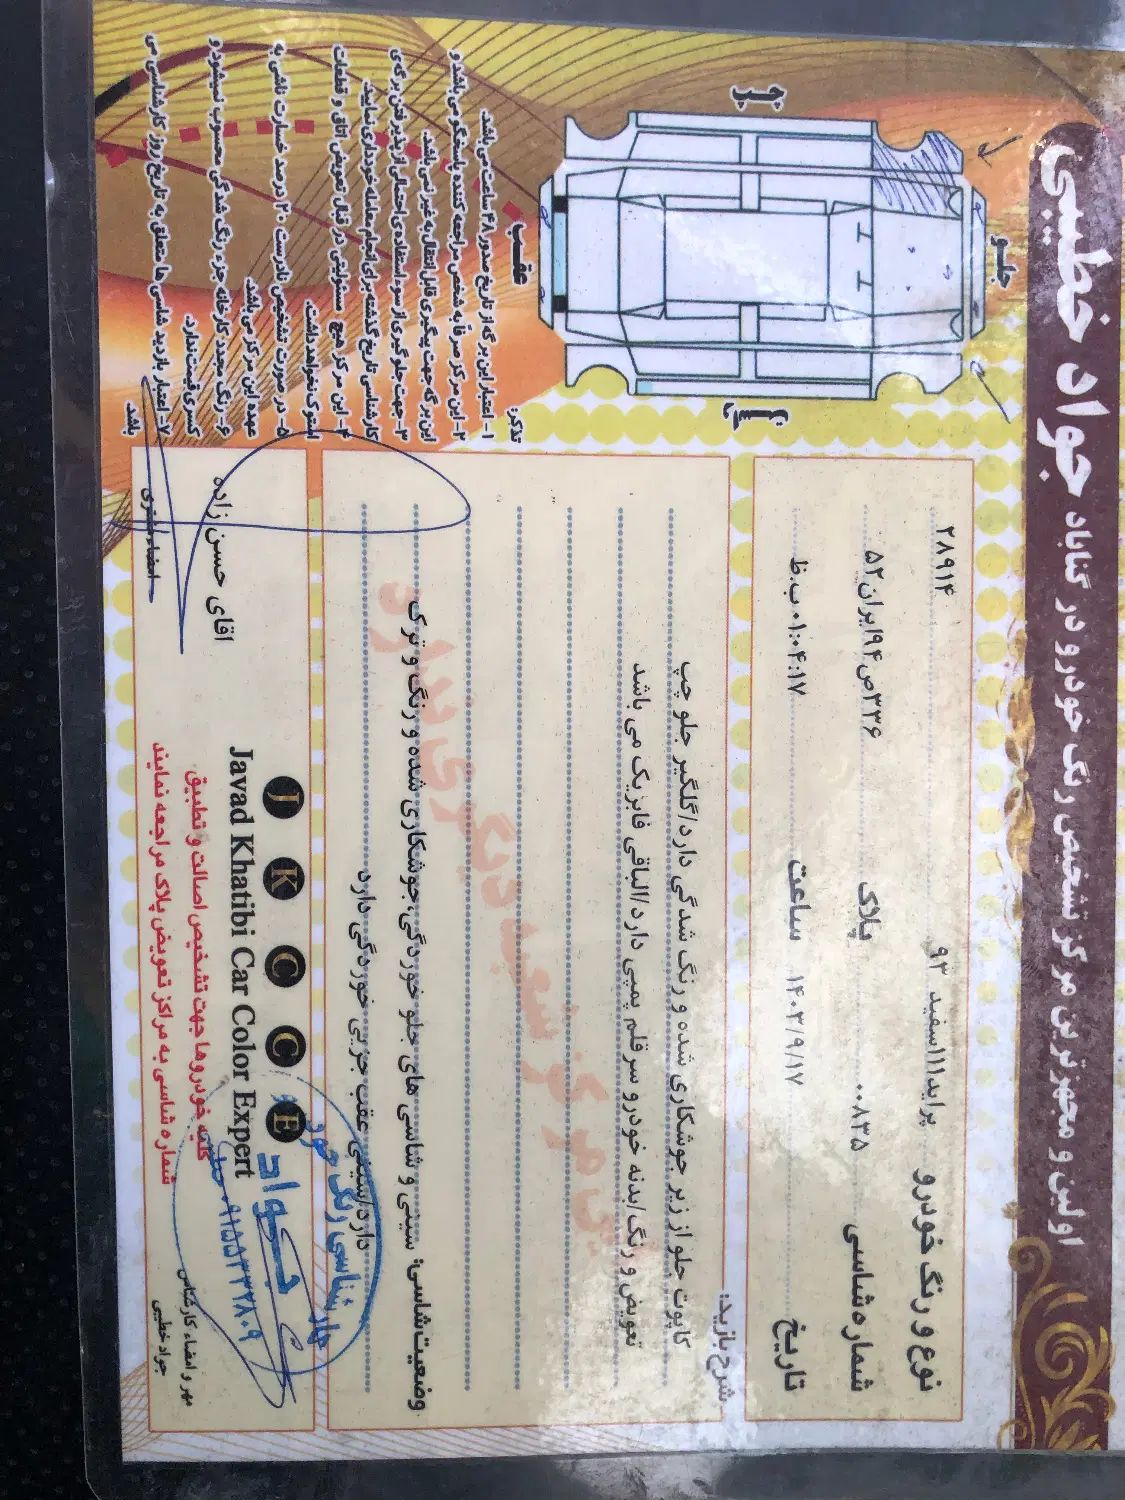 جواد خطیبی
اولین و مجهزترین مرکز تشخیص رنگ خودرو در گناباد
۲۸۹۱۴
نوع و رنگ خودرو پراید۱۱۱سفید ۹۳
شماره شاسی ۰۰۸۳۵ پلاک ۳۳۶ص۹۴ایران۵۲
تاریخ ۱۴۰۳/۹/۱۷ ساعت ۰۱:۰۴:۱۷ب.ظ
شرح بازدید:
کاپوت جلو از زیر جوشکاری شده و رنگ شدگی دارد/گلگیر جلو چپ
تعویض و رنگ/بدنه خودرو سرقلم پمپی دارد/الباقی فابریک می باشد
وضعیت شاسی: سینی و شاسی های جلو خوردگی جوشکاری شده و رنگ و ترک
دارد/سینی عقب جزیی خوردگی دارد
جلو
عقب
تذکر:
۱- اعتبار این برگه از تاریخ صدور ۴۸ ساعت می باشد.
۲- این مرکز صرفا به شخص مراجعه کننده پاسخگو می باشد و
این برگه جهت پیگیری قابل انتقال به غیر نمی باشد.
۳- جهت جلوگیری از سوء استفاده ی احتمالی از پذیرفتن برگه ی
کارشناسی تاریخ گذشته برای انجام معامله خودداری نمایید.
۴- این مرکز هیچ مسئولیتی در قبال تعویض اتاق و قطعات
استوک نخواهد داشت
۵- در صورت تشخیص نادرست ۲۰ درصد خسارت ناشی به
عهده این مرکز می باشد.
۶- رنگ مجدد کارخانه جزء رنگ شدگی محسوب نمیشود و
کسری قیمت ندارد.
۷- اعتبار بازدید شاسی ها متعلق به تاریخ روز کارشناسی می
باشد.
J K C C E
Javad Khatibi Car Color Expert
کلیه خودروها جهت تشخیص اصالت و تطبیق
شماره شاسی به مراکز تعویض پلاک مراجعه نمایند
آقای حسن زاده
امضاء مشتری
مهر و امضاء کارشناس
جواد خطیبی
کارشناسی رنگ خودرو
جواد